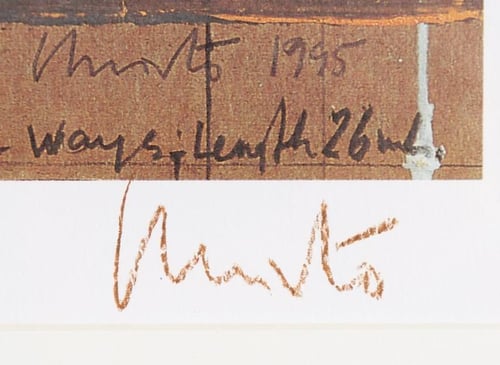 Christo 1995
- ways; Length 26 mi.
Christo